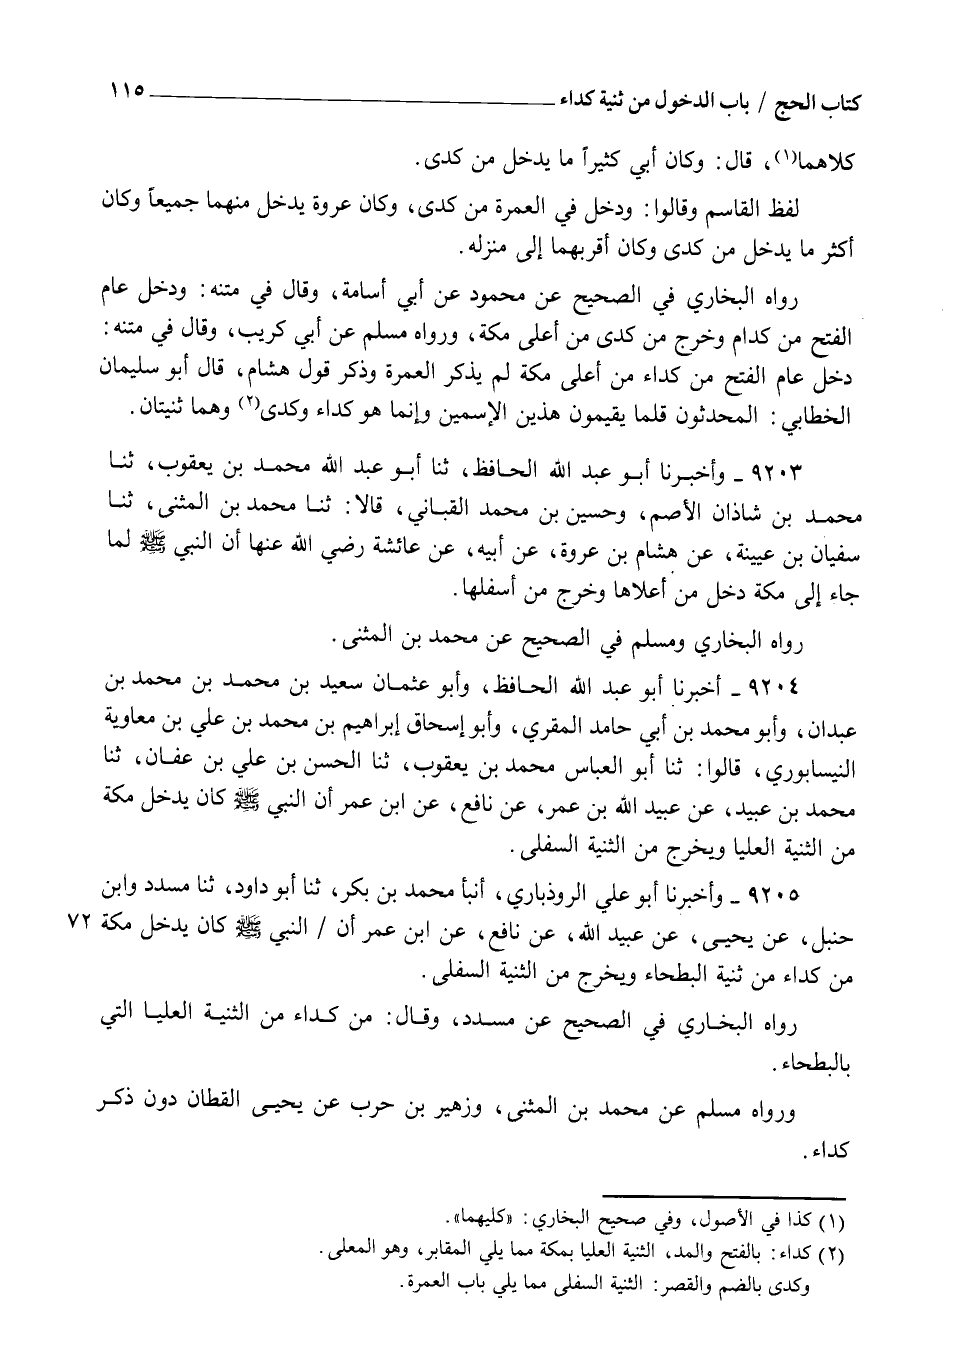 كتاب الحج / باب الدخول من ثنية كداء ١١٥
كلاهما(١)، قال: وكان أبي كثيراً ما يدخل من كدى.
لفظ القاسم وقالوا: ودخل في العمرة من كدى، وكان عروة يدخل منهما جميعاً وكان
أكثر ما يدخل من كدى وكان أقربهما إلى منزله.
رواه البخاري في الصحيح عن محمود عن أبي أسامة، وقال في متنه: ودخل عام
الفتح من كدام وخرج من كدى من أعلى مكة، ورواه مسلم عن أبي كريب، وقال في متنه:
دخل عام الفتح من كداء من أعلى مكة لم يذكر العمرة وذكر قول هشام، قال أبو سليمان
الخطابي: المحدثون قلما يقيمون هذين الإسمين وإنما هو كداء وكدى(٢) وهما ثنيتان.
٩٢٠٣ ـ وأخبرنا أبو عبد الله الحافظ، ثنا أبو عبد الله محمد بن يعقوب، ثنا
محمد بن شاذان الأصم، وحسين بن محمد القباني، قالا: ثنا محمد بن المثنى، ثنا
سفيان بن عيينة، عن هشام بن عروة، عن أبيه، عن عائشة رضي الله عنها أن النبي ﷺ لما
جاء إلى مكة دخل من أعلاها وخرج من أسفلها.
رواه البخاري ومسلم في الصحيح عن محمد بن المثنى.
٩٢٠٤ ـ أخبرنا أبو عبد الله الحافظ، وأبو عثمان سعيد بن محمد بن محمد بن
عبدان، وأبو محمد بن أبي حامد المقري، وأبو إسحاق إبراهيم بن محمد بن علي بن معاوية
النيسابوري، قالوا: ثنا أبو العباس محمد بن يعقوب، ثنا الحسن بن علي بن عفان، ثنا
محمد بن عبيد، عن عبيد الله بن عمر، عن نافع، عن ابن عمر أن النبي ﷺ كان يدخل مكة
من الثنية العليا ويخرج من الثنية السفلى.
٩٢٠٥ ـ وأخبرنا أبو علي الروذباري، أنبأ محمد بن بكر، ثنا أبو داود، ثنا مسدد وابن
حنبل، عن يحيى، عن عبيد الله، عن نافع، عن ابن عمر أن / النبي ﷺ كان يدخل مكة ٧٢
من كداء من ثنية البطحاء ويخرج من الثنية السفلى.
رواه البخاري في الصحيح عن مسدد، وقال: من كداء من الثنية العليا التي
بالبطحاء.
ورواه مسلم عن محمد بن المثنى، وزهير بن حرب عن يحيى القطان دون ذكر
كداء.
(١) كذا في الأصول، وفي صحيح البخاري: «كليهما».
(٢) كداء: بالفتح والمد، الثنية العليا بمكة مما يلي المقابر، وهو المعلى.
وكدى بالضم والقصر: الثنية السفلى مما يلي باب العمرة.